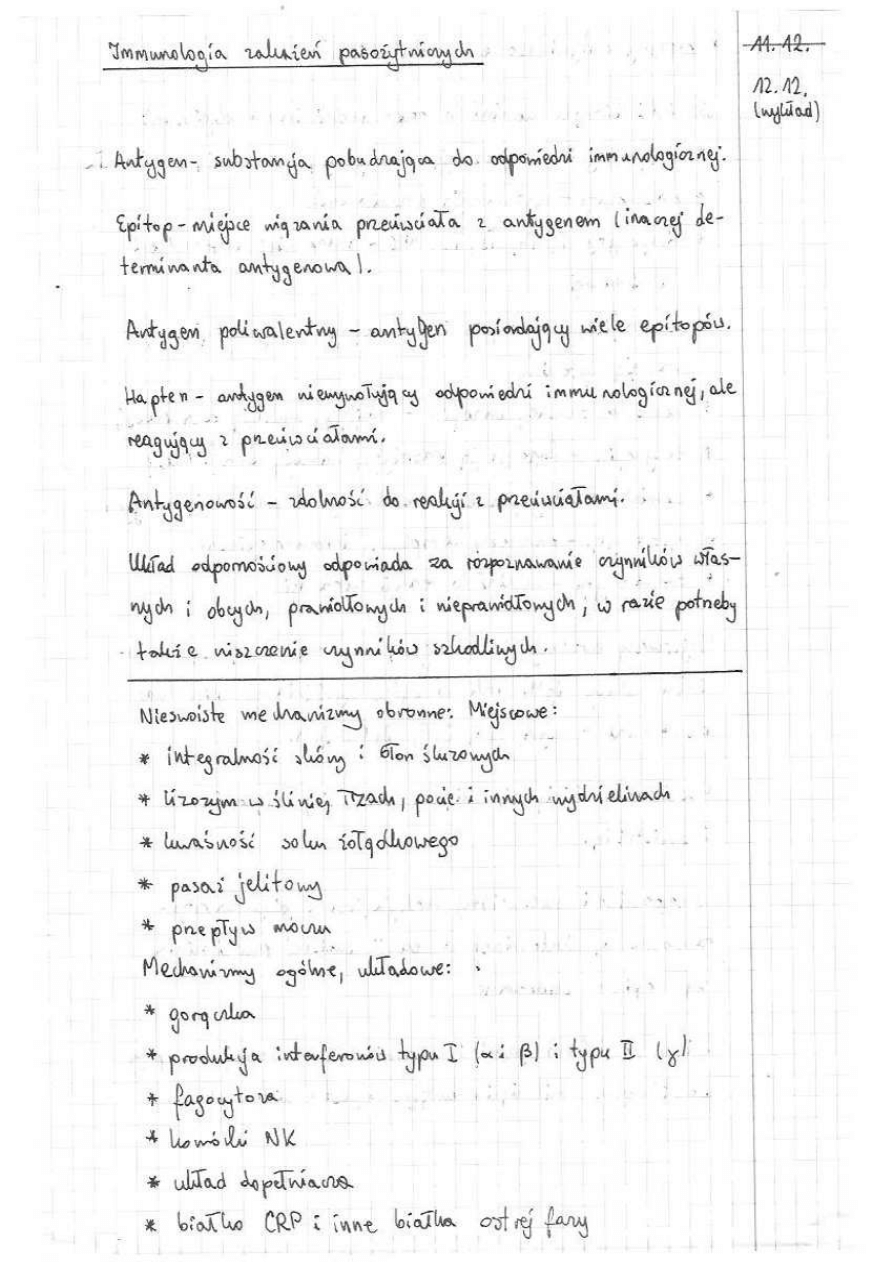 Immunologia zakażeń pasożytniczych
11.12.
12.12.
(wykład)
Antygen - substancja pobudzająca do odpowiedzi immunologicznej.
Epitop - miejsce wiązania przeciwciała z antygenem (inaczej de-
terminanta antygenowa).
Antygen poliwalentny - antygen posiadający wiele epitopów.
Hapten - antygen niewywołujący odpowiedzi immunologicznej, ale
reagujący z przeciwciałami.
Antygenowość - zdolność do reakcji z przeciwciałami.
Układ odpornościowy odpowiada za rozpoznawanie czynników włas-
nych i obcych, prawidłowych i nieprawidłowych; w razie potrzeby
także niszczenie czynników szkodliwych.
Nieswoiste mechanizmy obronne: Miejscowe:
* integralność skóry i błon śluzowych
* lizozym w ślinie, łzach, pocie i innych wydzielinach
* kwaśność soku żołądkowego
* pasaż jelitowy
* przepływ moczu
Mechanizmy ogólne, układowe:
* gorączka
* produkcja interferonów typu I (α i β) i typu II (γ)
* fagocytoza
* komórki NK
* układ dopełniacza
* białko CRP i inne białka ostrej fazy